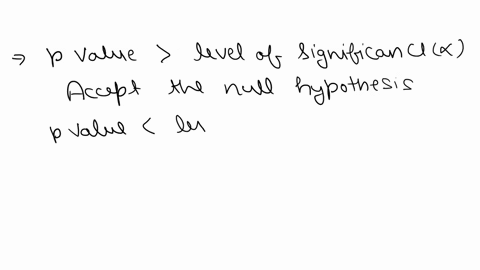 ⇒ p value > level of significance (α)
Accept the null hypothesis
p value < le